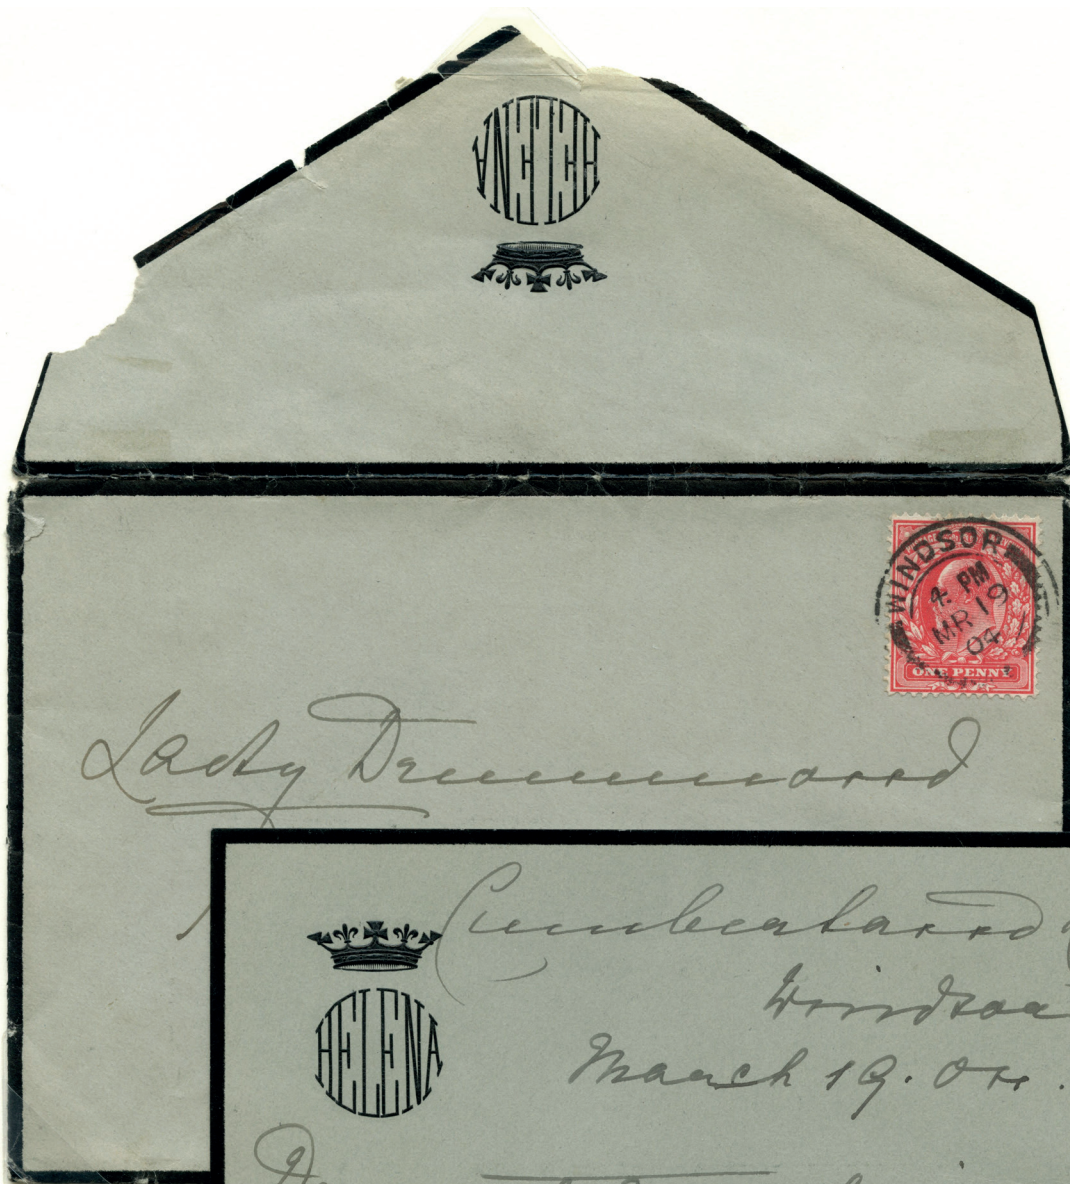 HELENA
WINDSOR
4. PM
MR 19
04
ONE PENNY
Lady Drummond
HELENA
Cumberland
Windsor
March 19. 04.